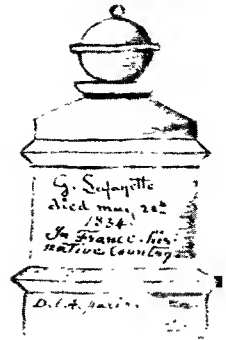 G. Lafayette
died may, 20th
1834.
In France his
native Country.
D. t. A. Paris.